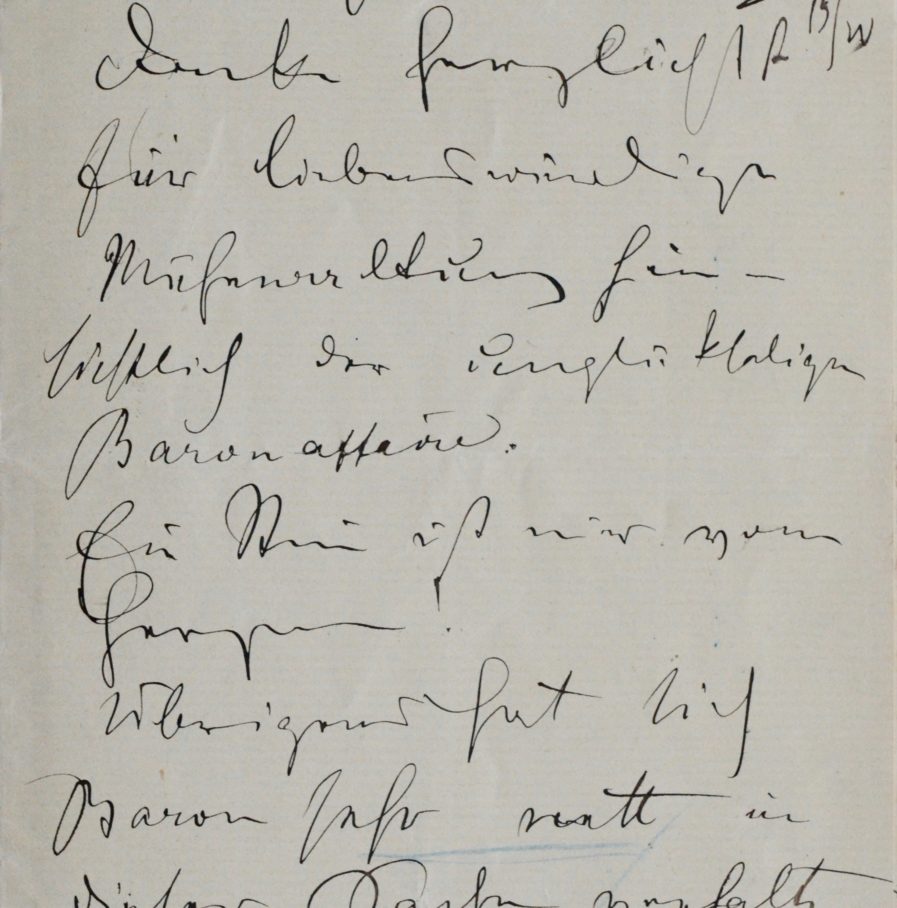 Danke herzlichst
für liebenswürdige
Mühewaltung hin-
sichtlich der unglückseligen
Baronaffaire.
Ein Stein ist mir vom
Herzen!
Übrigens hat sich
Baron sehr nett in
dieser Sache verhalt